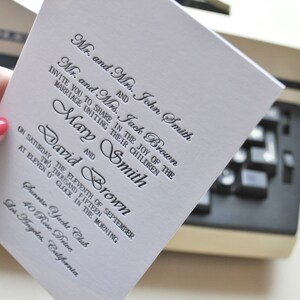 Mr. and Mrs. John Smith
AND
Mr. and Mrs. Jack Brown
INVITE YOU TO SHARE IN THE JOY OF THE
MARRIAGE UNITING THEIR CHILDREN
Mary Smith
AND
David Brown
ON SATURDAY THE ELEVENTH OF SEPTEMBER
TWO THOUSAND AND FIFTEEN
AT ELEVEN O'CLOCK IN THE MORNING
Yacht Club
Drive
Los Angeles, California